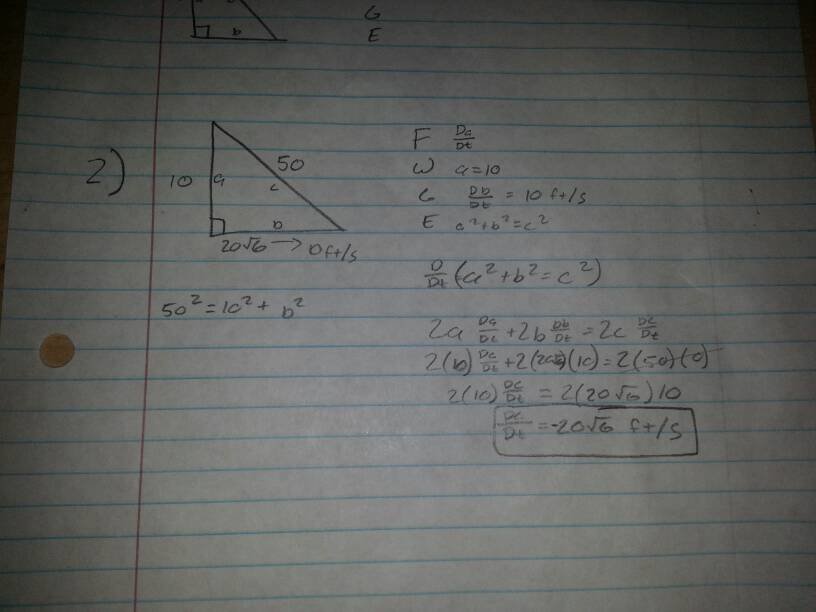 b
G
E
2)
10 a
50
c
b
20√6 → 10 ft/s
50² = 10² + b²
F Da/Dt
W a=10
G Db/Dt = 10 ft/s
E a²+b²=c²
D/Dt (a²+b²=c²)
2a Da/Dt + 2b Db/Dt = 2c Dc/Dt
2(10) Da/Dt + 2(20√6)(10) = 2(50)(0)
2(10) Da/Dt = 2(20√6)10
Da/Dt = -20√6 ft/s